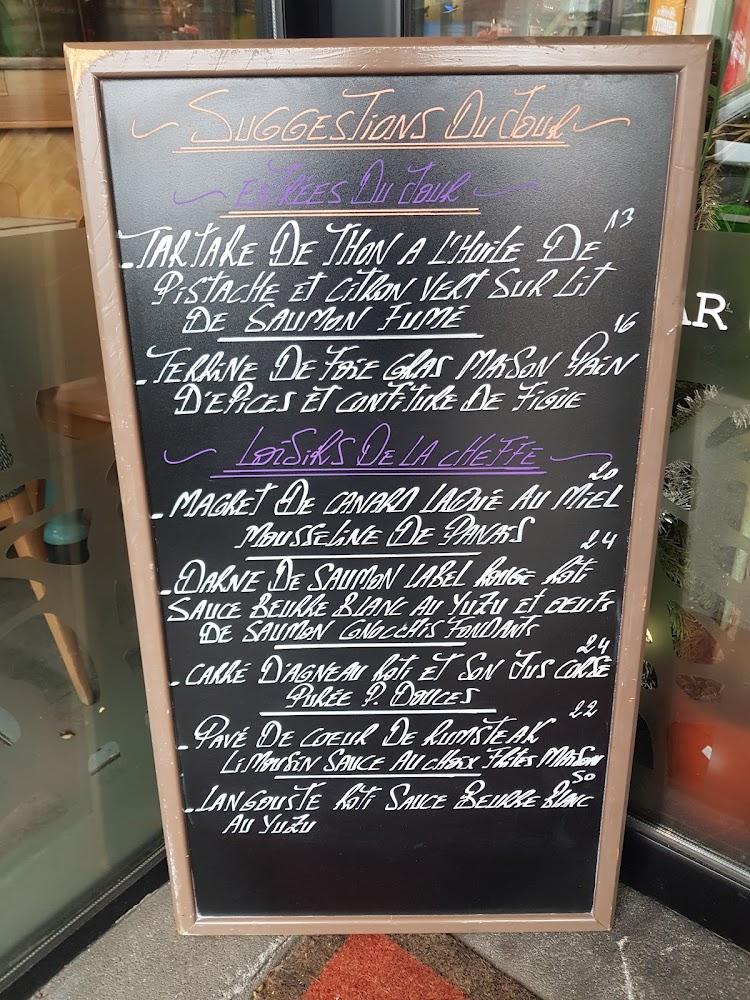 SUGGESTIONS DU JOUR
ENTRÉES DU JOUR
13
- TARTARE DE THON A L'HUILE DE
PISTACHE ET CITRON VERT SUR LIT
DE SAUMON FUMÉ
16
- TERRINE DE FOIE GRAS MAISON PAIN
D'EPICES ET CONFITURE DE FIGUE
LOISIRS DE LA CHEFFE
20
- MAGRET DE CANARD LAQUÉ AU MIEL
MOUSSELINE DE PANAIS
24
- DARNE DE SAUMON LABEL ROUGE ROTI
SAUCE BEURRE BLANC AU YUZU ET OEUFS
DE SAUMON GNOCCHIS FONDANTS
24
- CARRÉ D'AGNEAU ROTI ET SON JUS CORSÉ
PURÉE P. DOUCES
22
- PAVÉ DE COEUR DE RUMSTEAK
LIMOUSIN SAUCE AU CHOIX FRITES MAISON
50
- LANGOUSTE ROTI SAUCE BEURRE BLANC
AU YUZU
AR